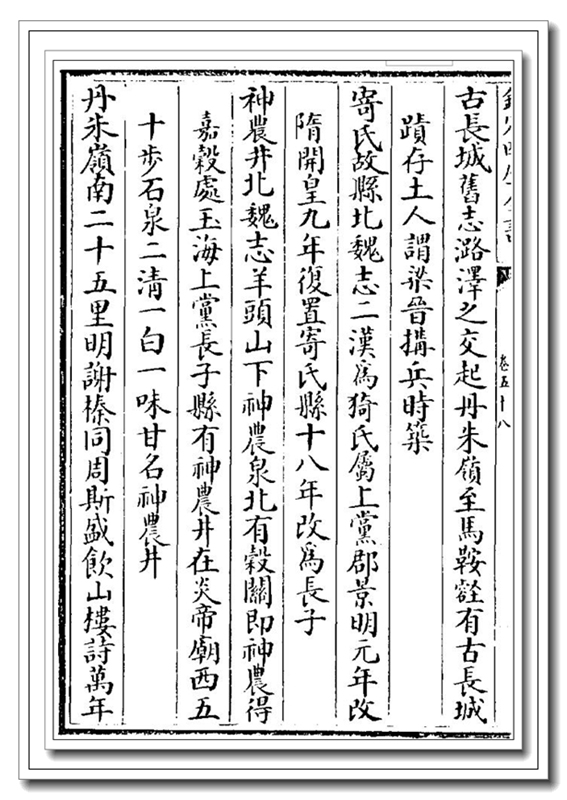 卷五十八
古長城舊志潞澤之交起丹朱嶺至馬鞍壑有古長城
蹟存土人謂梁晉搆兵時築
寄氏故縣北魏志二漢爲猗氏屬上黨郡景明元年改
隋開皇九年復置寄氏縣十八年改爲長子
神農井北魏志羊頭山下神農泉北有穀關即神農得
嘉穀處玉海上黨長子縣有神農井在炎帝廟西五
十步石泉二清一白一味甘名神農井
丹朱嶺南二十五里明謝榛同周斯盛飲山樓詩萬年